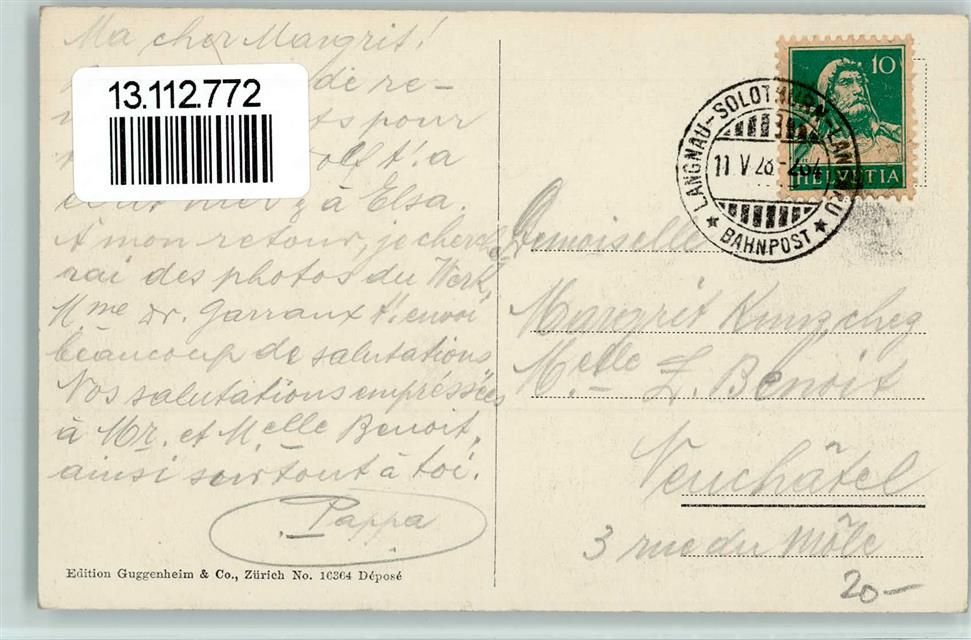 Ma cher Margrit!
13.112.772
de re-
ts pour
t'a
hier à Elsa.
A mon retour, je cherche-
rai des photos du Werk,
Mme Dr. Garraux t'envoi
beaucoup de salutations
Nos salutations empréssées
à Mr. et Melle Benoit,
ainsi surtout à toi.
Pappa
Edition Guggenheim & Co., Zürich No. 16364 Déposé
10
HELVETIA
LANGNAU-SOLOTHURN-LANGNAU
11 V 28
BAHNPOST
Demoiselle
Margrit Kunz, chez
Melle L. Benoit
Neuchâtel
3 rue du Môle
20-